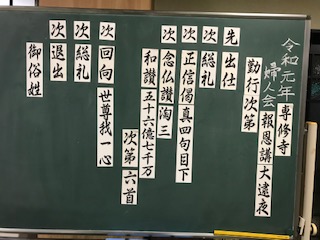 令和元年
専修寺
婦人会報恩講大逮夜
勤行次第
先 出仕
次 総礼
次 正信偈 真四句目下
次 念仏讃 淘三
和讃 五十六億七千万
次第 六首
次 回向 世尊我一心
次 総礼
次 退出
御俗姓